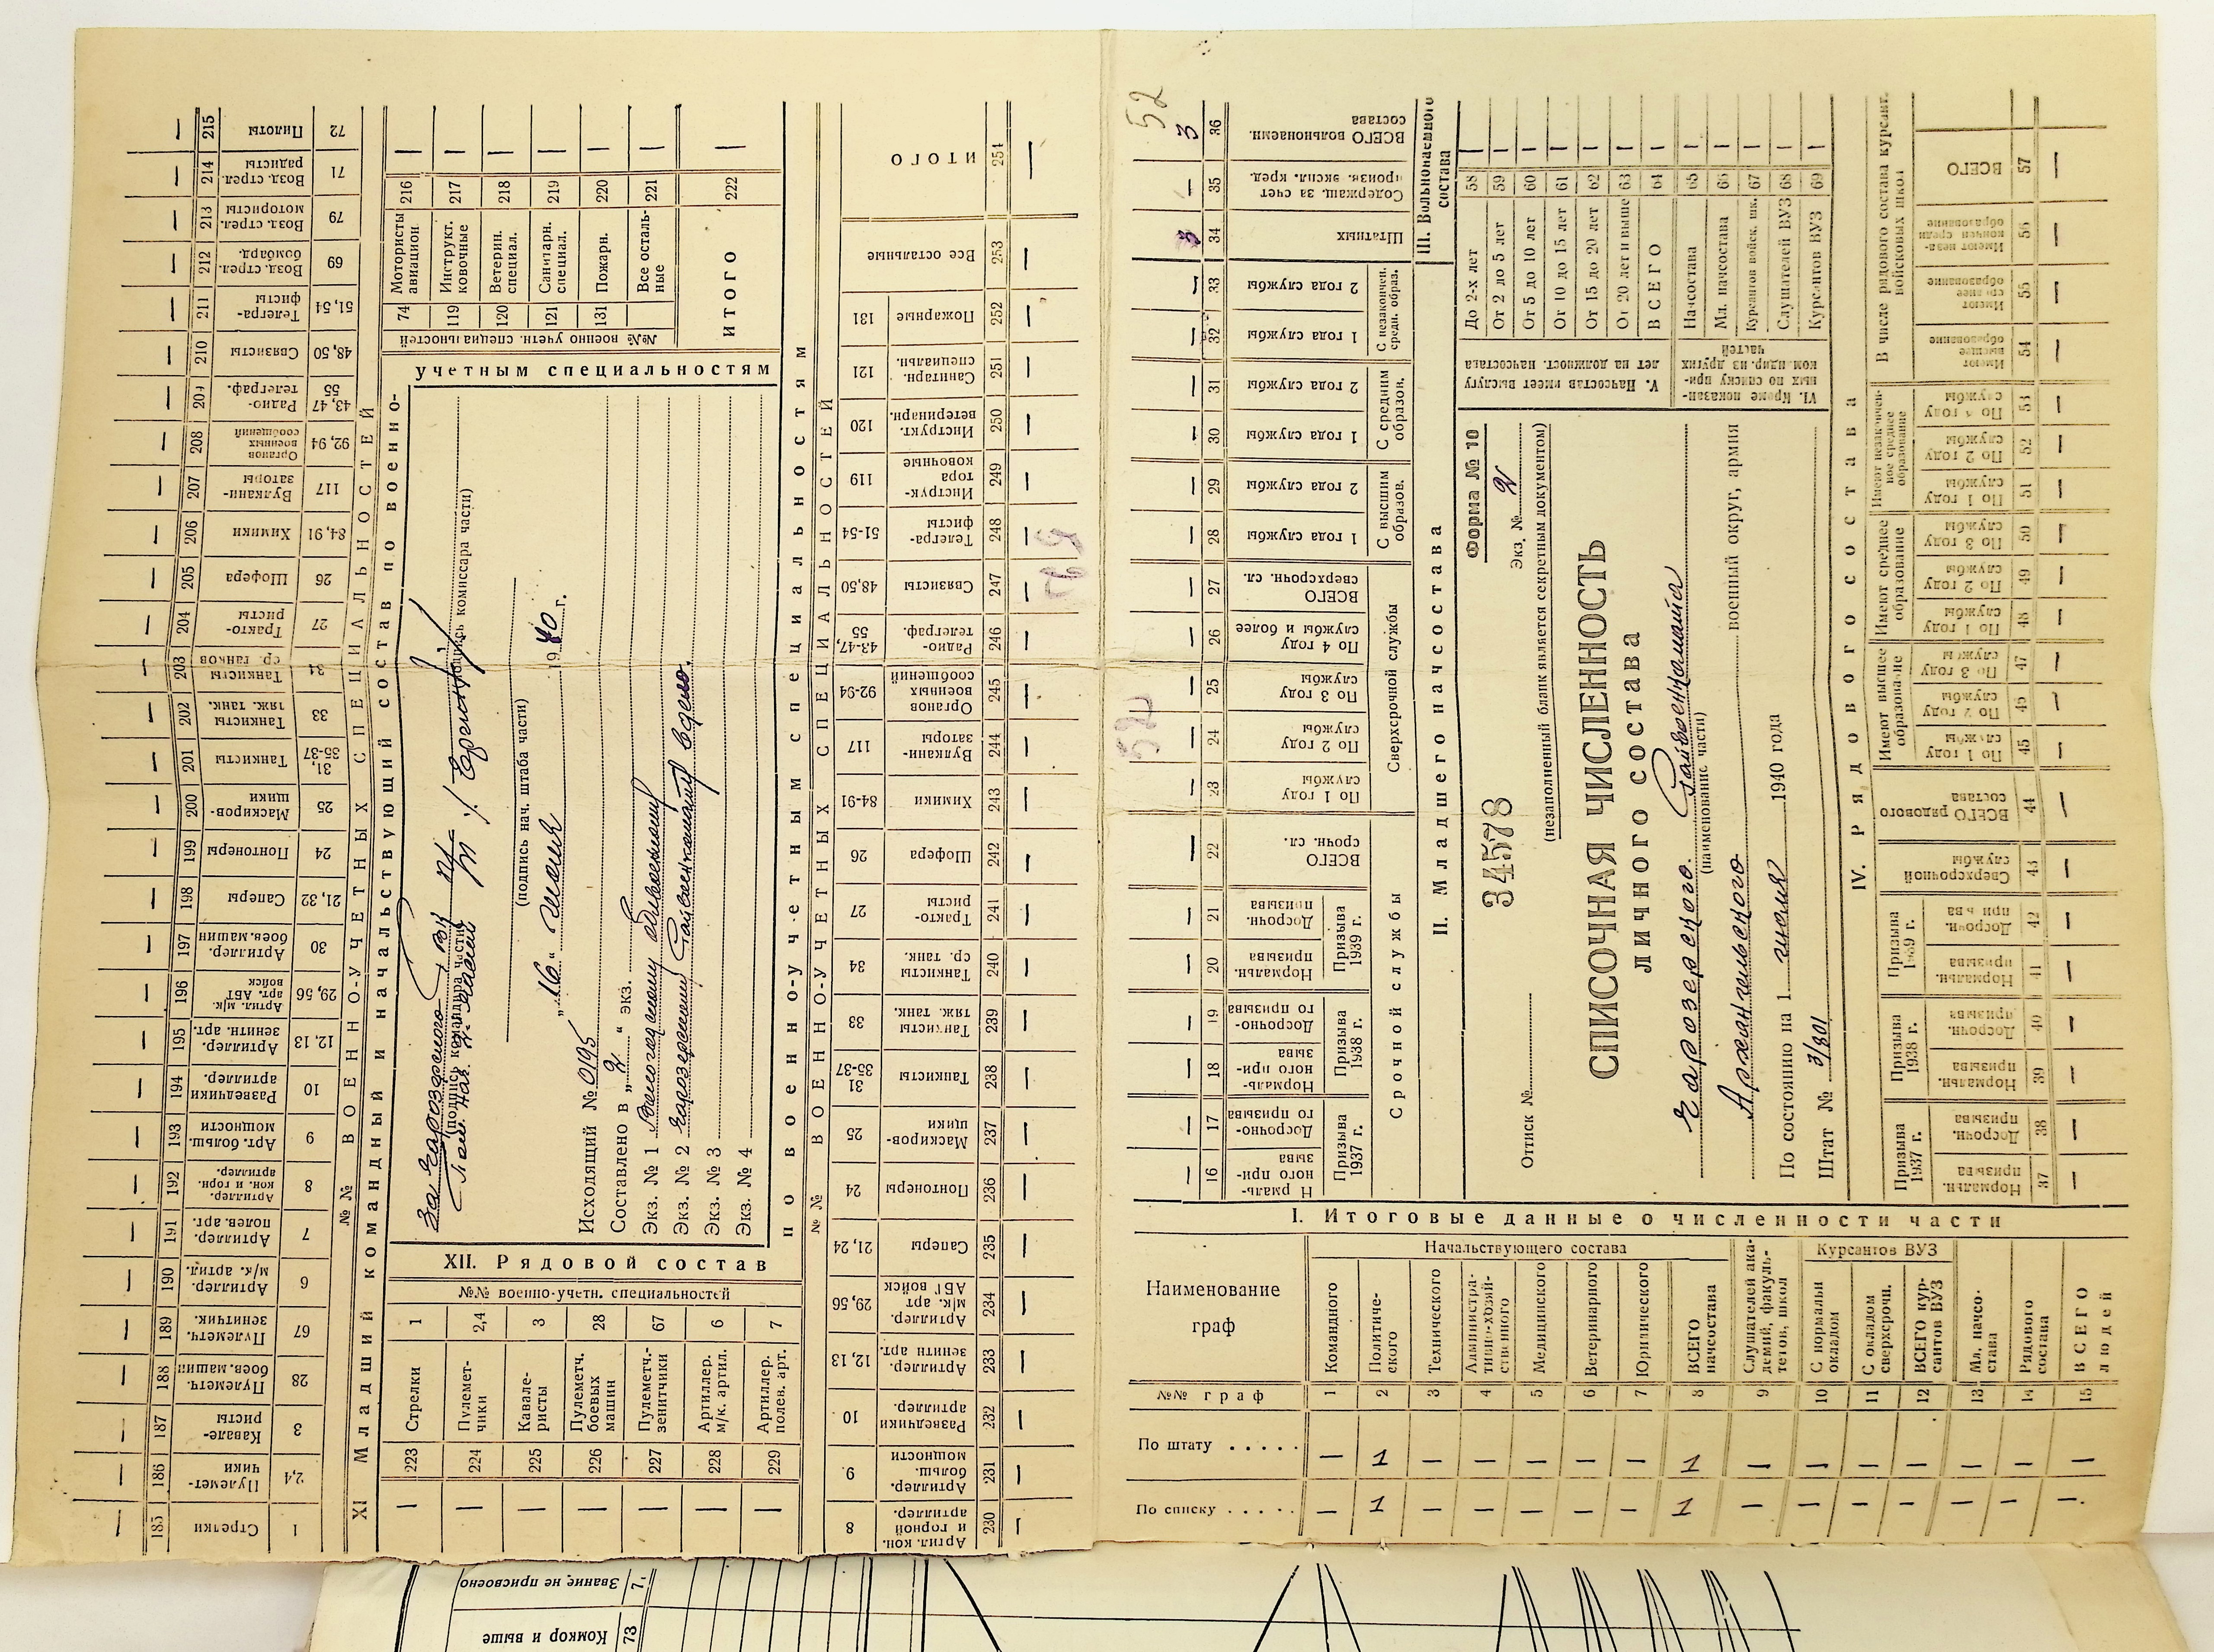 Форма № 10
Экз. № 2
(незаполненный бланк является секретным документом)
34578
Оттиск №
СПИСОЧНАЯ ЧИСЛЕННОСТЬ
ЛИЧНОГО СОСТАВА
(наименование части)
Архангельского военный округ, армия
По состоянию на 1 июля 1940 года
Штат № 3/801
I. Итоговые данные о численности части
Наименование граф
Начальствующего состава
Курсантов ВУЗ
Командного
Политического
Технического
Административно-хозяйственного
Медицинского
Ветеринарного
Юридического
ВСЕГО начсостава
Слушателей академий, факультетов, школ
С нормальн окладом
С окладом сверхсрочн.
ВСЕГО курсантов ВУЗ
Мл. начсостава
Рядового состава
ВСЕГО людей
№№ граф 1 2 3 4 5 6 7 8 9 10 11 12 13 14 15
По штату ..... — 1 — — — — — 1 — — — — — — —
По списку ..... — 1 — — — — — 1 — — — — — — —
II. Младшего начсостава
Срочной службы
Сверхсрочной службы
Призыва 1937 г.
Призыва 1938 г.
Призыва 1939 г.
ВСЕГО срочн. сл.
По 1 году службы
По 2 году службы
По 3 году службы
По 4 году службы и более
ВСЕГО сверхсрочн. сл.
С высшим образов.
С средним образов.
С незакончен. средн. образ.
1 года службы
2 года службы
16 17 18 19 20 21 22 23 24 25 26 27 28 29 30 31 32 33
III. Вольнонаемного состава
Штатных
Содержащ. за счет произв. экспл. кред.
ВСЕГО вольнонаемн. состава
34 35 36
3 — 3
52
V. Начсостав имеет выслугу лет на должност. начсостава
До 2-х лет 58 —
От 2 до 5 лет 59 —
От 5 до 10 лет 60 —
От 10 до 15 лет 61 —
От 15 до 20 лет 62 —
От 20 лет и выше 63 —
ВСЕГО 64 —
VI. Кроме показанных по списку прикомандир. из других частей
Начсостава 65 —
Мл. начсостава 66 —
Курсантов войск. шк. 67 —
Слушателей ВУЗ 68 —
Курсантов ВУЗ 69 —
IV. Рядового состава
Призыва 1937 г.
Призыва 1938 г.
Призыва 1939 г.
Нормальн. призыва
Досрочн. призыва
Сверхсрочной службы
ВСЕГО рядового состава
Имеют высшее образование
Имеют среднее образование
Имеют незаконченное среднее образование
По 1 году службы
По 2 году службы
По 3 году службы
В числе рядового состава курсант. войсковых школ
Имеют высшее образование
Имеют среднее образование
Имеют незакончен средн образование
ВСЕГО
37 38 39 40 41 42 43 44 45 46 47 48 49 50 51 52 53 54 55 56 57
XI Младший командный и начальствующий состав по военно-учетным специальностям
№№ ВОЕННО-УЧЕТНЫХ СПЕЦИАЛЬНОСТЕЙ
185 Стрелки 1
186 Пулеметчики 2,4
187 Кавалеристы 3
188 Пулеметч. боев. машин 28
189 Пулеметч. зенитчик. 67
190 Артиллер. м/к. артил. 6
191 Артиллер. полев. арт. 7
192 Артиллер. кон. и горн. артиллер. 8
193 Арт. больш. мощности 9
194 Разведчики артиллер. 10
195 Артиллер. зенитн. арт. 12, 13
196 Артил. м/к. арт. АБТ войск 29, 56
197 Артиллер. боев. машин 30
198 Саперы 21, 32
199 Понтонеры 24
200 Маскировщики 25
201 Танкисты 31, 35-37
202 Танкисты тяж. танк. 33
203 Танкисты ср. танков 34
204 Трактористы 27
205 Шофера 26
206 Химики 84, 91
207 Вулканизаторы 117
208 Органов военных сообщений 92, 94
209 Радиотелеграф. 43, 47 55
210 Связисты 48, 50
211 Телеграфисты 51, 54
212 Возд. стрел. бомбард. 69
213 Возд. стрел. мотористы 79
214 Возд. стрел. радисты 71
215 Пилоты 72
№№ военно учетн. специальностей
74 Мотористы авиацион 216 —
119 Инструкт. ковочные 217 —
120 Ветерин. специал. 218 —
121 Санитарн. специал. 219 —
131 Пожарн. 220 —
Все остальные 221 —
ИТОГО 222 —
(подпись командира части)
(подпись комиссара части)
(подпись нач. штаба части)
„16" июля 1940 г.
Исходящий № 0195
Составлено в „2" экз.
Экз. № 1
Экз. № 2
Экз. № 3
Экз. № 4
XII. Рядовой состав по военно-учетным специальностям
№№ военно-учетн. специальностей
1 Стрелки 223 —
2,4 Пулеметчики 224 —
3 Кавалеристы 225 —
28 Пулеметч. боевых машин 226 —
67 Пулеметч.-зенитчики 227 —
6 Артиллер. м/к. артил. 228 —
7 Артиллер. полев. арт. 229 —
№№ ВОЕННО-УЧЕТНЫХ СПЕЦИАЛЬНОСТЕЙ
8 Артил. кон. и горной артиллер. 230
9 Артиллер. больш. мощности 231
10 Разведчики артиллер. 232
12, 13 Артиллер. зенитн арт. 233
29, 56 Артиллер. м/к. арт АБТ войск 234
21, 24 Саперы 235
24 Понтонеры 236
25 Маскировщики 237
31 35-37 Танкисты 238
33 Танкисты тяж. танк. 239
34 Танкисты ср. танк. 240
27 Трактористы 241
26 Шофера 242
84-91 Химики 243
117 Вулканизаторы 244
92-94 Органов военных сообщений 245
43-47, 55 Радиотелеграф. 246
48,50 Связисты 247
51-54 Телеграфисты 248
119 Инструктора ковочные 249
120 Инструкт. ветеринарн. 250
121 Санитарн. специальн. 251
131 Пожарные 252
Все остальные 253
ИТОГО 254
Звание не присвоено
Комкор и выше 73